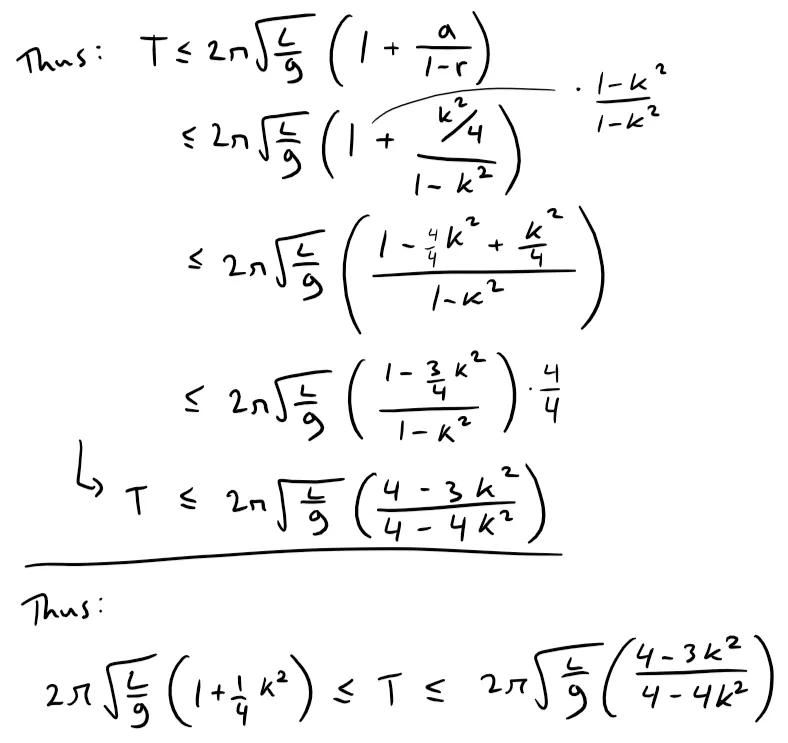 Thus: T ≤ 2π√(L/g) (1 + a/(1-r))
≤ 2π√(L/g) (1 + (k²/4)/(1-k²)) · (1-k²)/(1-k²)
≤ 2π√(L/g) ((1 - 4/4 k² + k²/4)/(1-k²))
≤ 2π√(L/g) ((1 - 3/4 k²)/(1-k²)) · 4/4
↳ T ≤ 2π√(L/g) ((4 - 3k²)/(4 - 4k²))
Thus:
2π√(L/g) (1 + 1/4 k²) ≤ T ≤ 2π√(L/g) ((4 - 3k²)/(4 - 4k²))